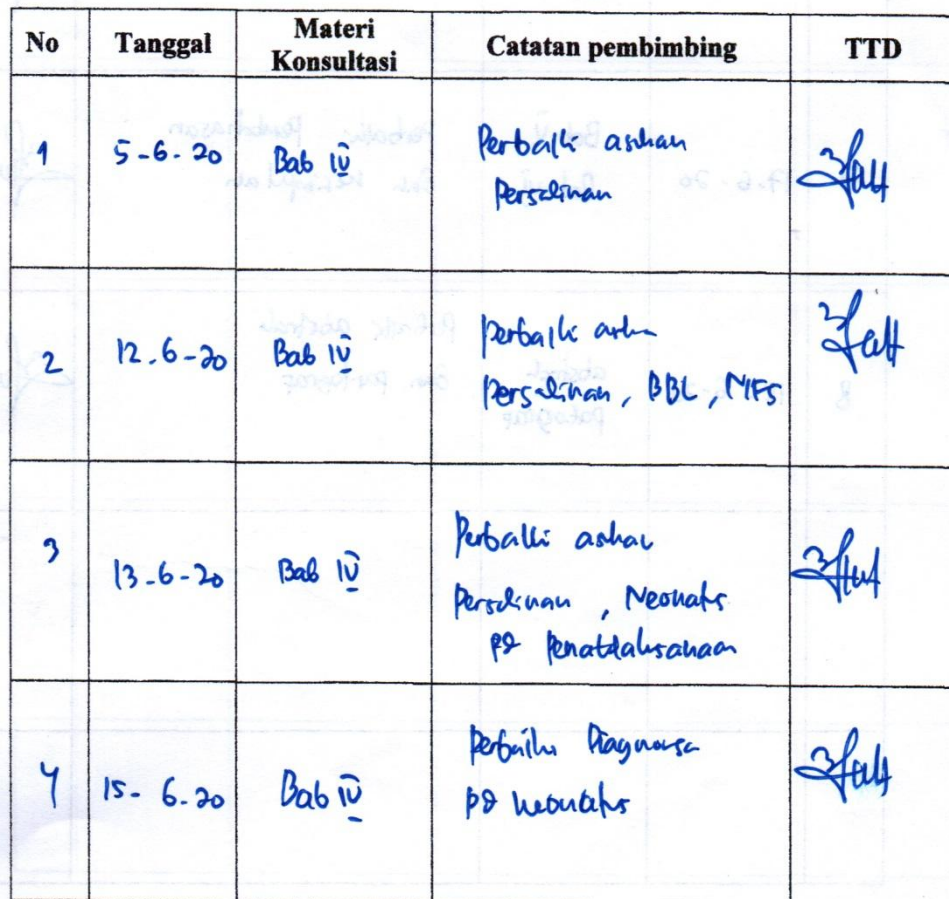 No Tanggal Materi Konsultasi Catatan pembimbing TTD
1 5-6-20 Bab IV Perbaiki asuhan
Persalinan
2 12.6-20 Bab IV Perbaiki
Persalinan, BBL, NIFS
3 13-6-20 Bab IV Perbaiki asuhan
Persalinan, Neonatus
pd Penatalaksanaan
4 15-6.20 Bab IV Perbaiki Diagnosa
pd neonatus